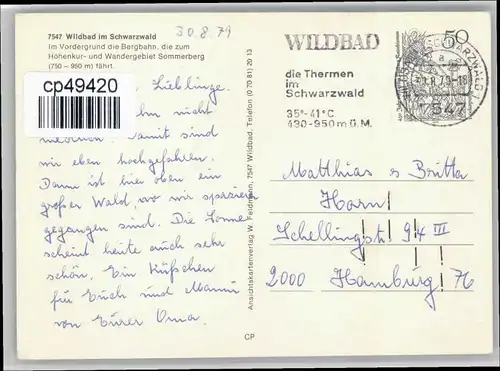 30.8.79
7547 Wildbad im Schwarzwald
Im Vordergrund die Bergbahn, die zum
Höhenkur- und Wandergebiet Sommerberg
(750 – 950 m) fährt.
cp49420
Lieblinge.
nicht
Damit sind
wir eben hochgefahren.
Dann ist hier oben ein
großer Wald, wo wir spazieren
gegangen sind. Die Sonne
scheint heute auch sehr
schön. Ein Küßchen
für Euch und Mami
von Eurer Oma.
Ansichtskartenverlag W. Feldmann, 7547 Wildbad, Telefon (0 70 81) 29 13
CP
WILDBAD
die Thermen
im
Schwarzwald
35°-41°C
430-950m ü.M.
50
7547
Matthias & Britta
Horn
Schellingstr. 94 III
2000 Hamburg 76